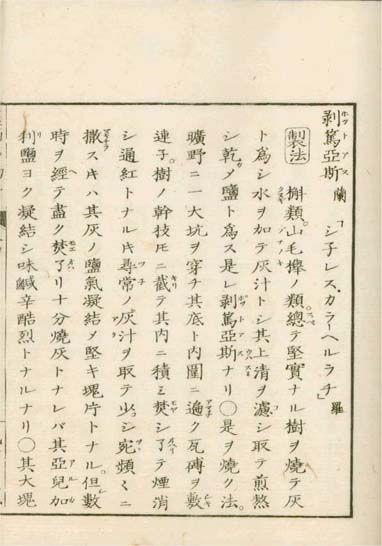 剥篤亜斯 蘭 「シ子レス、カラーヘルラチ」 羅
製法 槲類。山毛欅ノ類。總テ堅實ナル樹ヲ焼テ灰
ト為シ水ヲ加テ灰汁トシ其上清ヲ濾シ取テ煎熬
シ乾メ鹽ト為ス是レ剥篤亜斯ナリ〇是ヲ焼ク法。
曠野ニ一大坑ヲ穿チ其底ト内圍ニ遍ク瓦磚ヲ敷
連子。樹ノ幹技𪜈ニ截テ其内ニ積ミ焚シ了テ煙消
シ通紅トナル𪜈尋常ノ灰汁ヲ取テ少シ宛頻〻ニ
撒スキハ其灰ノ鹽氣凝結メ堅キ塊片トナル。但數
時ヲ經テ盡ク焚了リ十分焼灰トナレバ其亜兒加
利鹽ヨク凝結シ味鹹辛酷烈トナルナリ〇其大塊